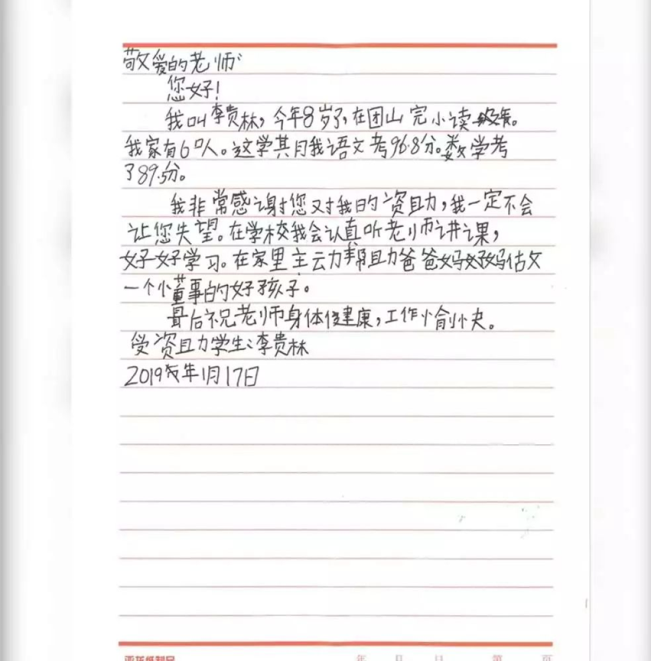 敬爱的老师:
您好!
我叫李贵林,今年8岁了,在团山完小读 年。
我家有6口人。这学其月我语文考96.8分。数学考
了89.5分。
我非常感谢您对我的资助,我一定不会
让您失望。在学校我会认真听老师讲课,
好好学习。在家里主云力帮助爸爸妈妈估文
一个小董事的好孩子。
最后祝老师身体健康,工作愉快。
受资助学生:李贵林
2019年1月17日
年 月 日 第 页